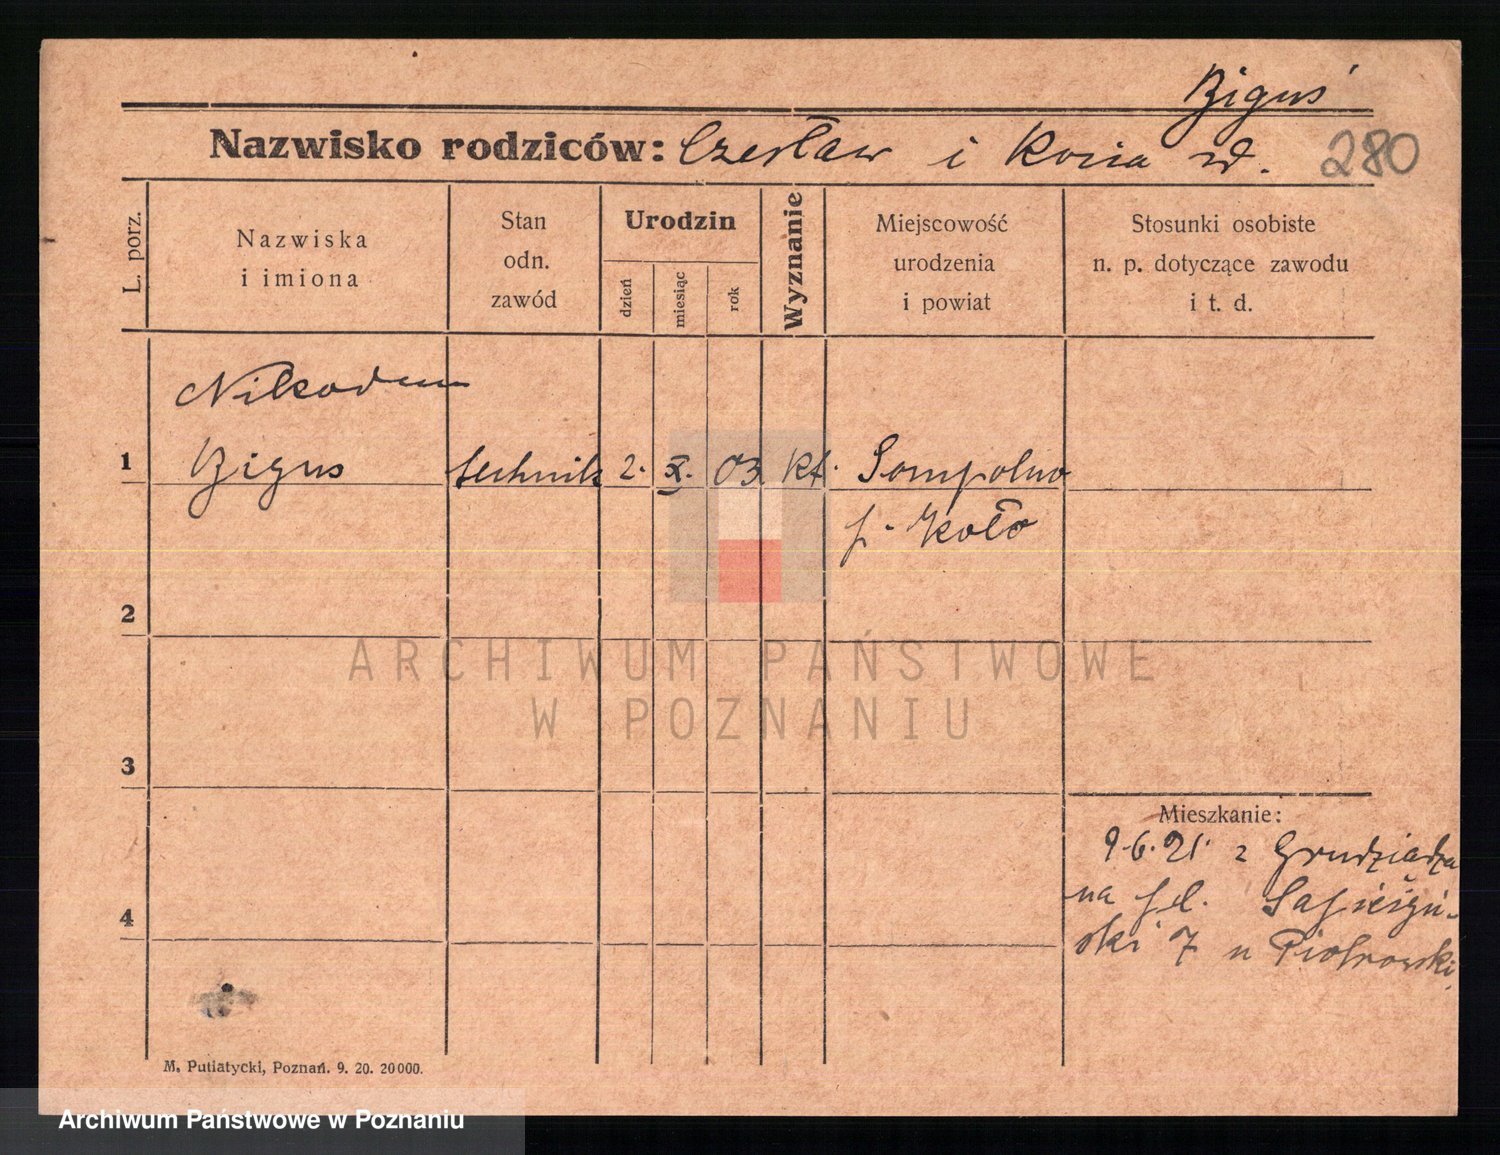 Biguś
Nazwisko rodziców: Czesław i Kozia zd.
280
L. porz.
Nazwiska
i imiona
Stan
odn.
zawód
Urodzin
dzień
miesiąc
rok
Wyznanie
Miejscowość
urodzenia
i powiat
Stosunki osobiste
n. p. dotyczące zawodu
i t. d.
Nikodem
1 Bigus technik 2. X. 03 kt. Sompolno
p. Koło
2
3
4
Mieszkanie:
9.6.21. z Grudziądza
na pl. Sapieżyń-
ski 7 u Piotrowski
M. Putiatycki, Poznań. 9. 20. 20000.
ARCHIWUM PAŃSTWOWE
W POZNANIU
Archiwum Państwowe w Poznaniu